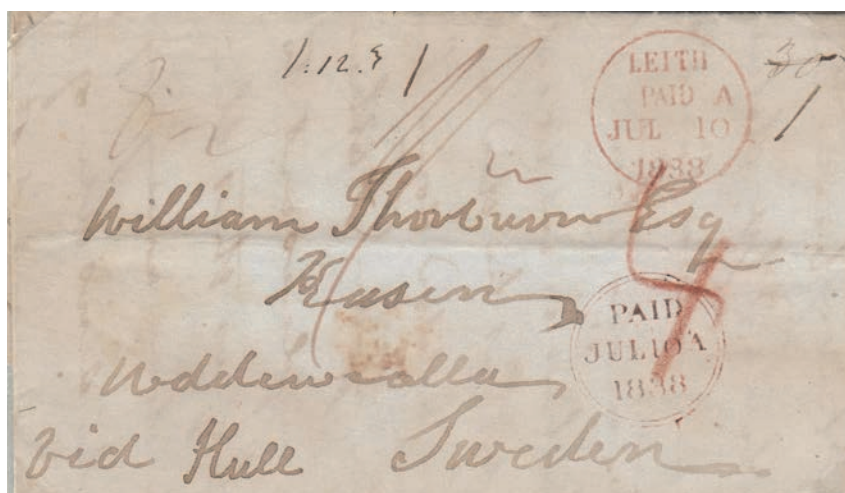 1.12.8 /
30
/
LEITH
PAID A
JUL 10
1838
William Thorburn Esq
Kasen
4
PAID
JUL 10 A
1838
Uddewalla
Viá Hull Sweden